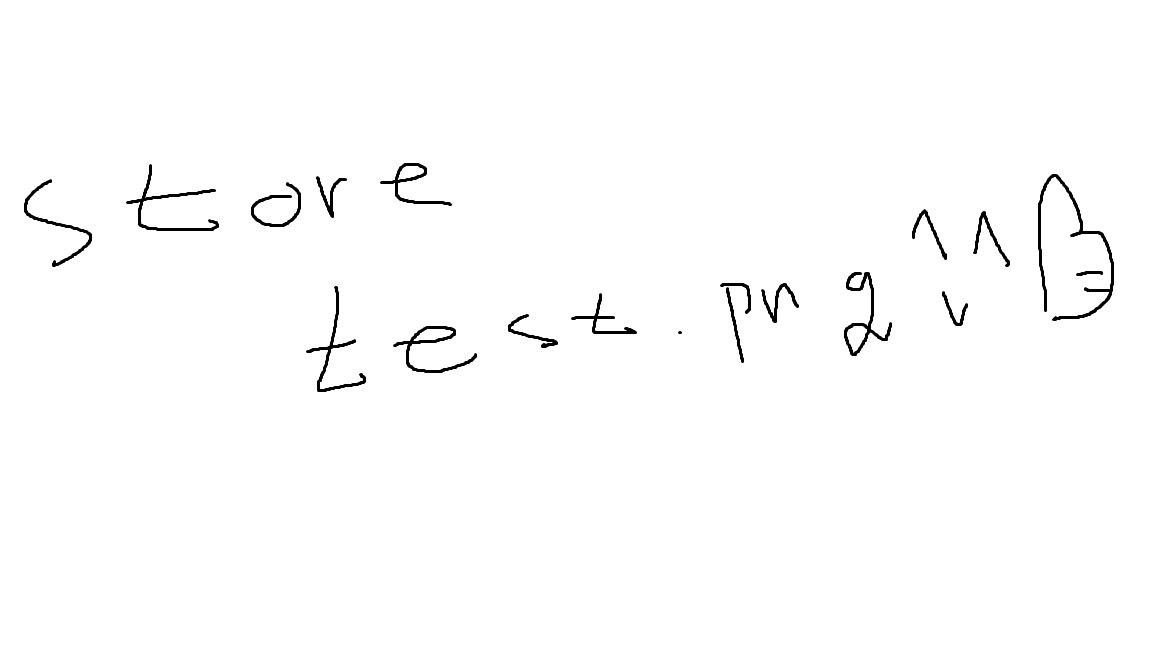 store
test.png